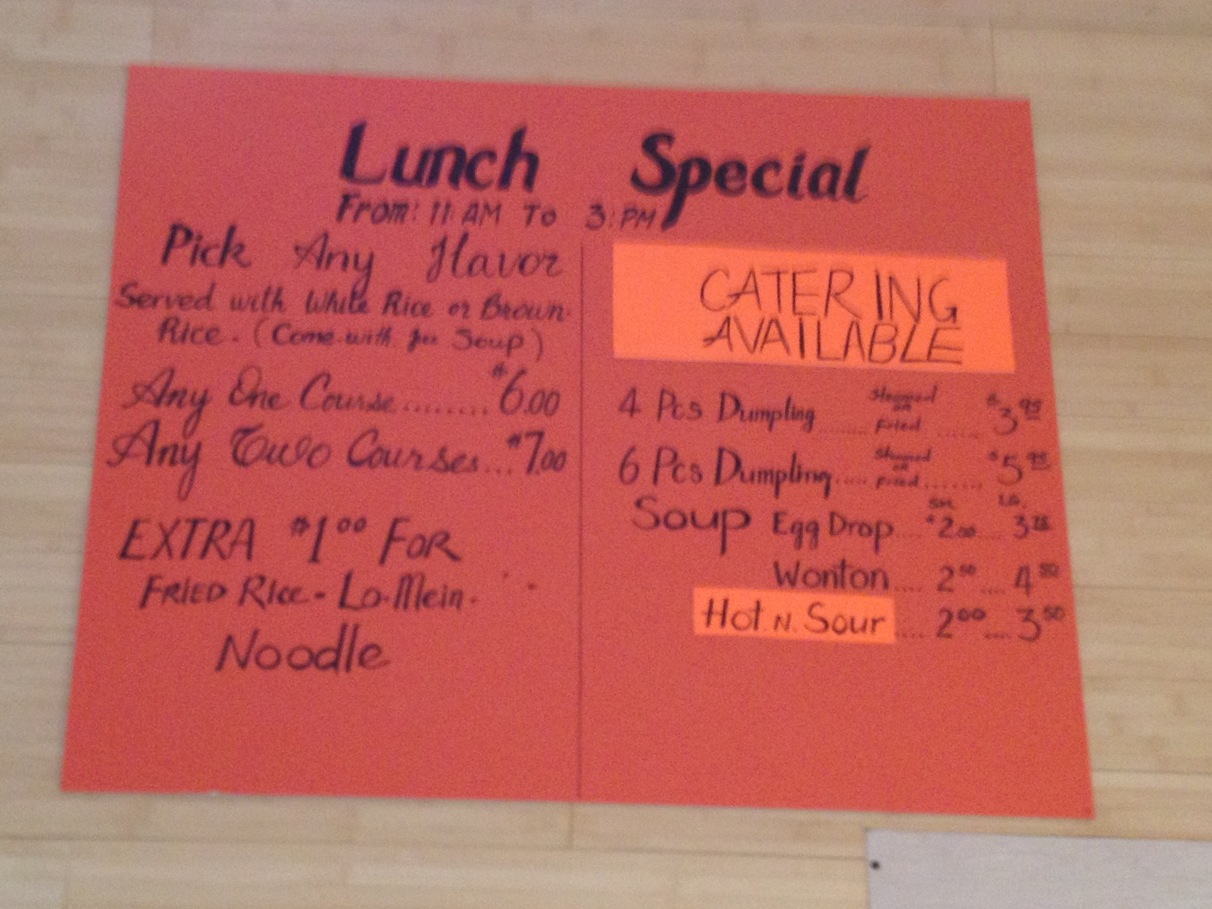 Lunch Special
From: 11 AM To 3: PM
Pick Any Flavor
Served with White Rice or Brown
Rice. (Come with free Soup)
Any One Course........$6.00
Any Two Courses...$7.00
EXTRA $1.00 FOR
FRIED Rice - Lo-Mein -
Noodle
CATERING
AVAILABLE
4 Pcs Dumpling ........ Steamed or Fried ...... $3.
6 Pcs Dumpling..... Steamed or Fried........ $5.
Sm. LG.
Soup Egg Drop.... $2.00.... 3.
Wonton.... 2.50 .... 4.50
Hot. N. Sour .... 2.00 .... 3.50